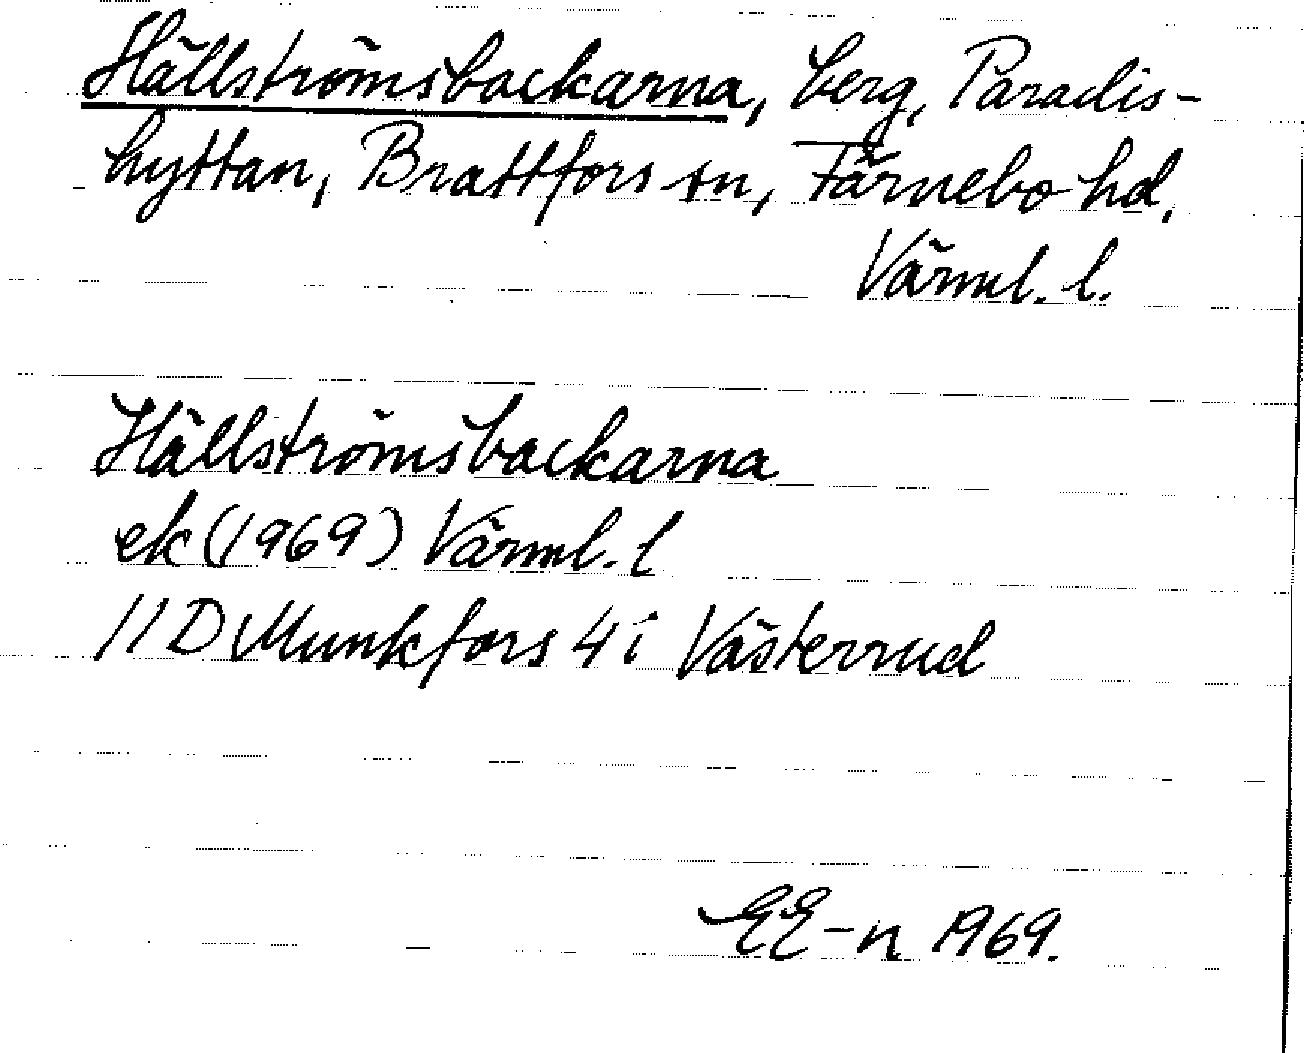 Hällströmsbackarna, berg, Paradis-
hyttan, Brattfors sn, Färnebo hd,
Värml. l.
Hällströmsbackarna
ek (1969) Värml. l
11 D Munkfors 4 i Västerrud
EE-n 1969.